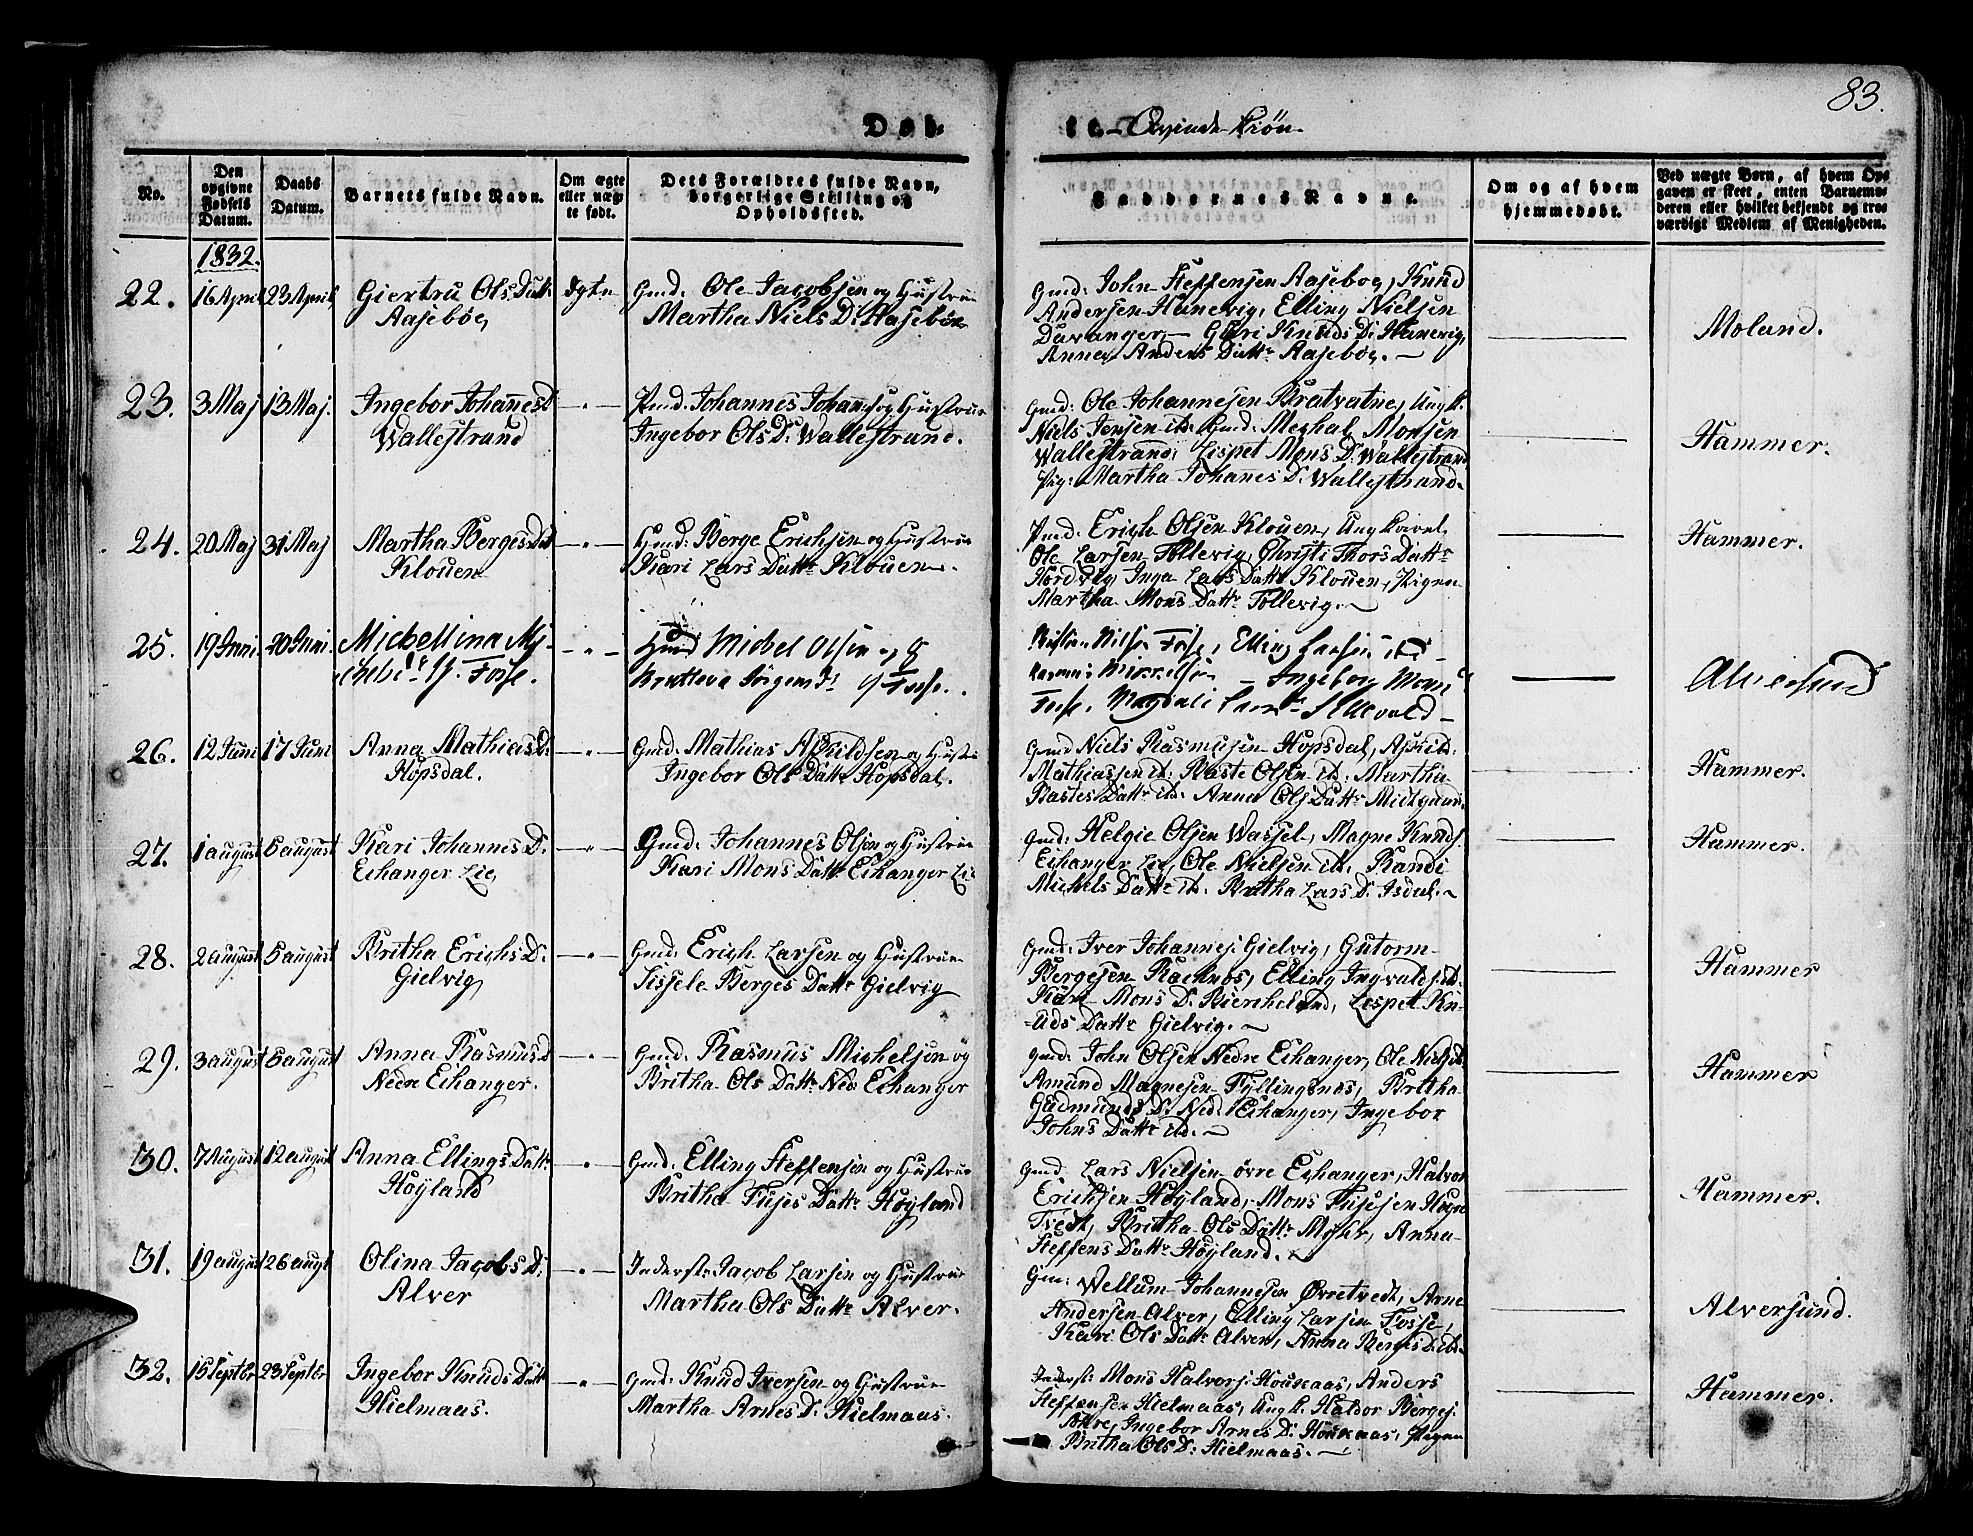 83.
Døb-
te. Qvinde-Kiön
No.
Den opgivne Fødsels Datum.
Daabs Datum.
Barnets fulde Navn.
Om ægte eller uægte født.
Dets Forældres fulde Navn, borgerlige Stilling og Opholdssted.
Faddernes Navne.
Om og af hvem hjemmedøbt.
Ved uægte Børn, af hvem Opgaven er skeet, enten Barnemoderen eller hvilket bekjendt og troværdigt Medlem af Menigheden.
1832.
22. 16 April 23 April Giertru Ols Datt: Ægte Gmd: Ole Jacobsen og Hustrue
Aasebøe, Martha Niels D:
Gmd: John Steffensen Aasebøe, Knud
Andersen Hanevig, Elling Nielsen
Davanger, Guri Knuds D: Hanevig,
Anne Anders Datt: Aasebøe.
Moland.
23. 3 Maj 13 Maj. Ingebor Johannes D Pmd: Johannes Johans: og Hustrue
Wallestrand Ingebor Ols D: Wallestrand.
Gmd: Ole Johannesen Bratvatne, Ung K.
Niels Jensen ib: Gmd: Meghal Monsen
Wallestrand, Lispet Mons D: Wallestrand
Pig: Martha Johannes D: Wallestrand.
Hammer.
24. 20 Maj 31 Maj Martha Berges Dat Gmd: Berge Erichsen og Hustrue
Klouen Kari Lars Datt: Klouen.
Pmd: Erich Olsen Klouen, Ung Karl
Ole Larsen Tollevig, Christi Thors Datt:
Hordvig, Inga Lars Datt: Klouen, Pigen
Martha Mons Datt: Tollevig.
Hammer.
25. 19 Juni. 20 Juni. Michellina Mi- Michel Olsen og
Fosse. Brutteva Jörgens D:
Nilsen Fosse, Elling Larsen ib
Mikkelsen Ingeborg Mons
Fosse, Magdali Lars
Alversund
26. 12 Juni 17 Juni Anna Mathias D: Gmd: Mathias Askildsen og Hustr:
Hopsdal. Ingebor Ols Datt: Hopsdal.
Gmd Niels Rasmusen Hopsdal, Askild
Mathiassen ib: Baste Olsen ib: Martha
Bastes Datt: ib: Anna Ols Datt: Midtgaard
Hammer.
27. 1 august 5 august Kari Johannes D: Gmd: Johannes Olsen og Hustrue
Eihanger Lie, Kari Mons Datt: Eihanger Lie
Gmd: Helgie Olsen Wassel, Magne Knuds:
Eihanger Lie, Ole Nielsen ib: Randi
Michels Datt: ib: Britha Lars D: Isdal.
Hammer.
28. 2 august 5 august Britha Erichs D: Gmd: Erich Larsen og Hustrue
Gielvig, Sissele Berges Datt: Gielvig
Gmd: Iver Johannes: Gielvig, Gutorm
Bergesen Rochnes, Elling Ingvalds: ib:
Kari Mons D: Lispet Kn-
uds Datt: Gielvig.
Hammer
29. 3 august 5 august Anna Rasmus D Gmd: Rasmus Michelsen og
Nedre Eihanger. Britha Ols Datt: Ned Eihanger
Gmd: John Olsen Nedre Eihanger, Ole Niels: ib
Amund Magnesen Fyllingsnes, Britha
Gudmunds D: Ned: Eihanger, Ingebor
Johns Datt: ib.
Hammer
30. 7 August 12 august Anna Ellings Datt: Gmd: Elling Steffensen og Hustrue
Høyland Britha Thies Datt: Høyland
Gmd: Lars Nielsen øvre Eihanger, Halvor
Erichsen Høyland, Mons Thiesen
Tvedt, Britha Ols Datt: Myhr, Anna
Steffens Datt: Høyland.
Hammer.
31. 19 august 26 augt Olina Jacobs D: Inderst: Jacob Larsen og Hustrue
Alver Martha Ols Datt: Alver.
Gm: Wellum Johannesen Øvretvedt, Arne
Andersen Alver, Elling Larsen Fosse,
Kari Ols Datt: Alver, Anna Berges D: ib:
Alversund.
32. 15 Septbr 23 Septbr Ingebor Knuds Datt Gmd: Knud Iversen og Hustrue
Hielmaas. Martha Arnes D: Hielmaas.
Inderst: Mons Halvors: Houkaas, Anders
Steffensen Hielmaas, Ung K. Haldor Berges:
Ingebor Arnes D: Houkaas, Pigen
Britha Ols D: Hielmaas.
Hammer.